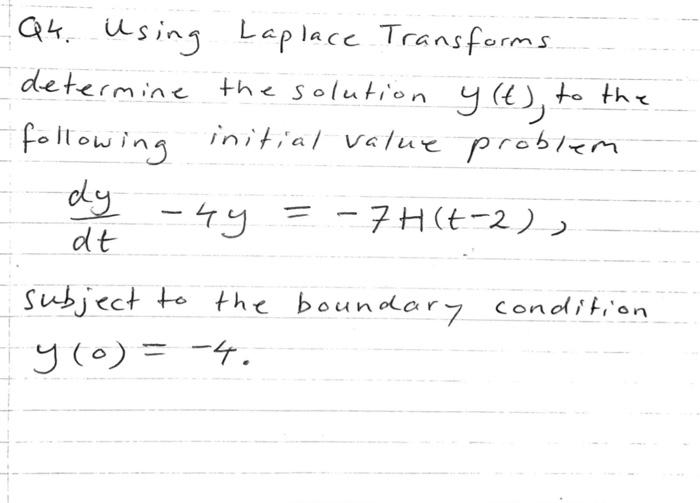 Q4. Using Laplace Transforms
determine the solution y(t), to the
following initial value problem
dy/dt - 4y = -7H(t-2),
subject to the boundary condition
y(0) = -4.